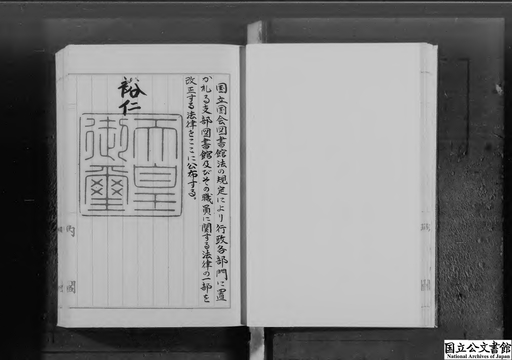 国立国会図書館法の規定により行政各部門に置
かれる支部図書館及びその職員に関する法律の一部を
改正する法律をここに公布する。
裕仁
天皇
御璽
内閣
国立公文書館
National Archives of Japan